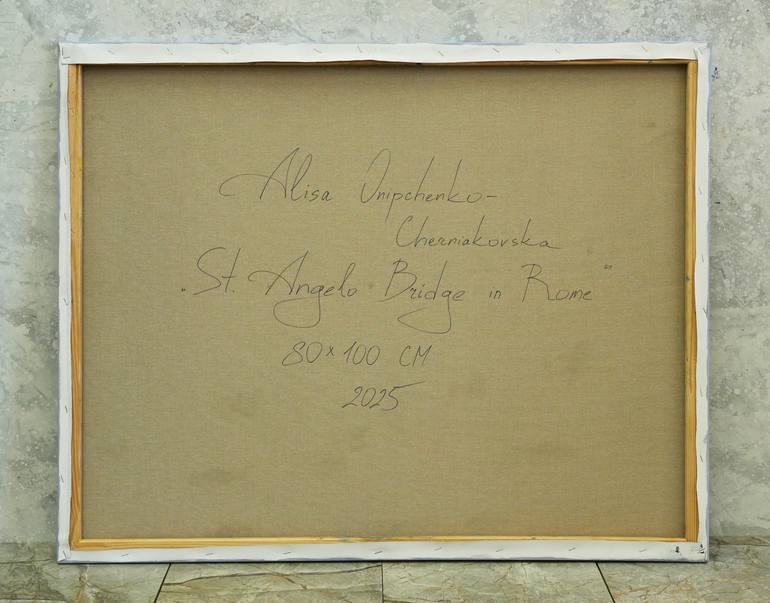 Alisa Onipchenko-
Cherniakovska
„St. Angelo Bridge in Rome“
80×100 CM
2025